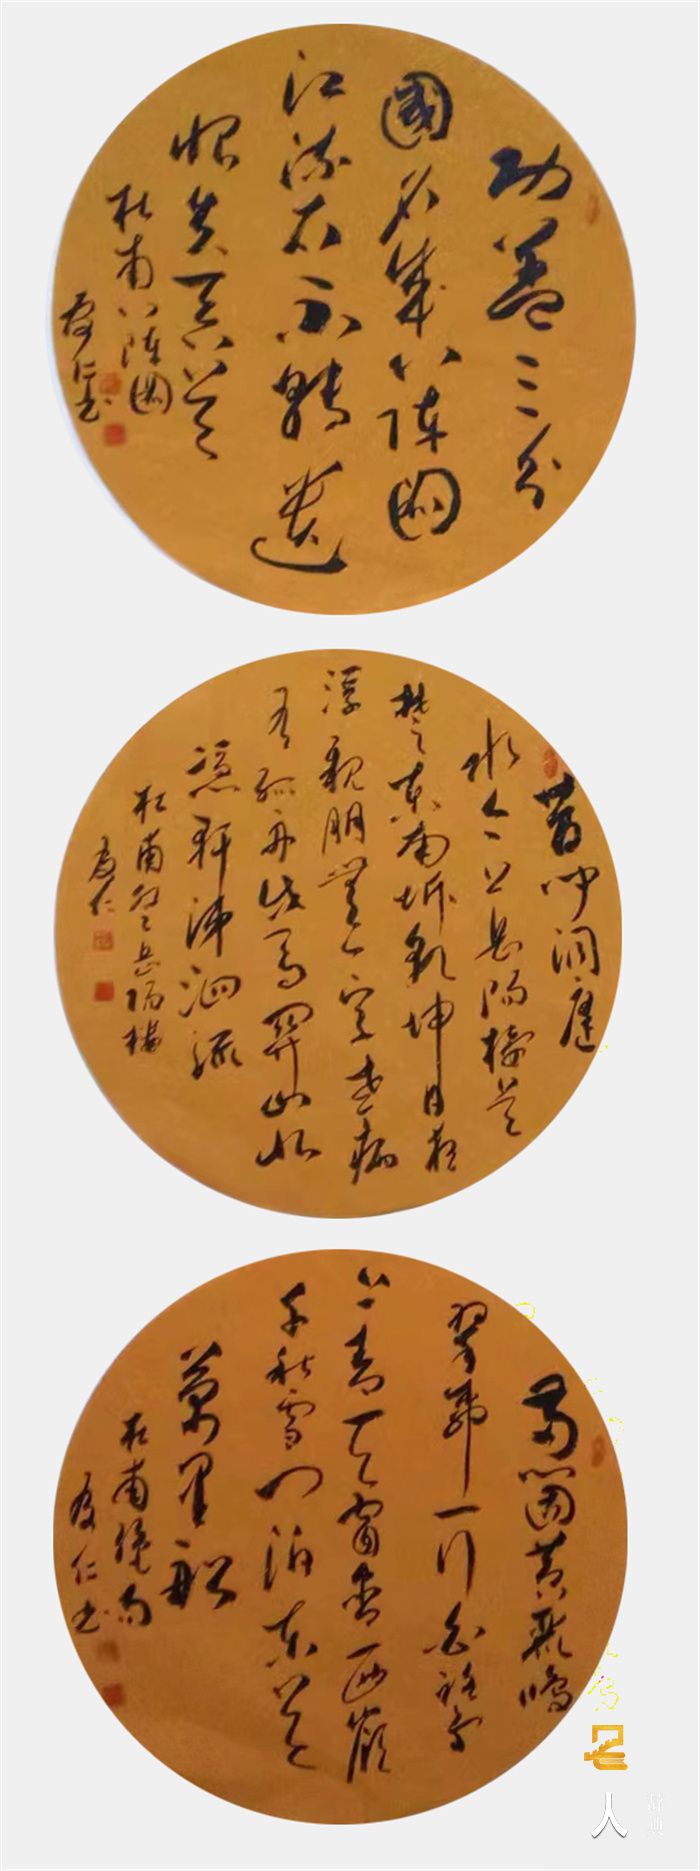 功蓋三分
國名成八陣圖
江流石不轉遺
恨失吞吳
杜甫八陣圖
仁书
昔聞洞庭
水今上岳陽樓吳
楚東南坼乾坤日夜
浮親朋無一字老病
有孤舟戎馬關山北
憑軒涕泗流
杜甫登岳陽樓
仁
兩個黃鸝鳴
翠柳一行白鷺
上青天窗含西嶺
千秋雪門泊東吳
萬里船
杜甫絕句
仁书
名人
辞典